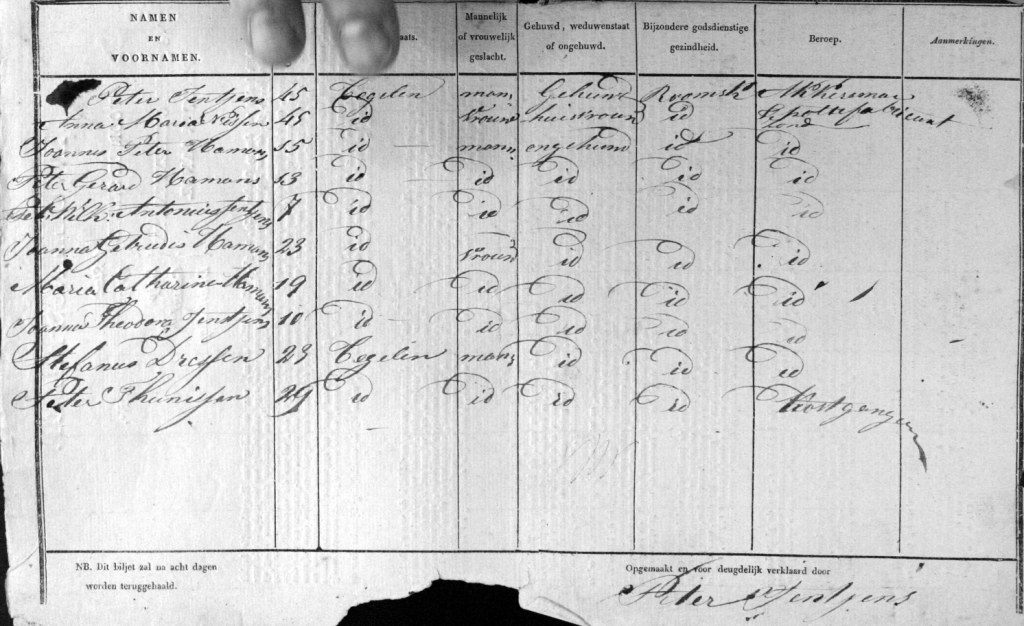 NAMEN EN VOORNAMEN. aats. Mannelijk of vrouwelijk geslacht. Gehuwd, weduwenstaat of ongehuwd. Bijzondere godsdienstige gezindheid. Beroep. Aanmerkingen.
Peter Jentjens 45 Tegelen man Gehuwt Roomsch Akkersman
Anna Maria 45 id vrouw huisvrouw id
Joannes Peter Hamans 15 id man ongehuwd id id
Peter Gerard Hamans 13 id id id id id
Antonius Jentjens 7 id id id id id
Joanna Getrudis Hamans 23 id vrouw id id id
Maria Catharine Hamans 19 id id id id id
Joanna Theodora Jentjens 10 id id id id id
Stefanus Dressen 23 Tegelen man id id id
Peter Thunissen 29 id id id id kostganger
NB. Dit biljet zal na acht dagen
worden teruggehaald.
Opgemaakt en voor deugdelijk verklaard door
Peter Jentjens